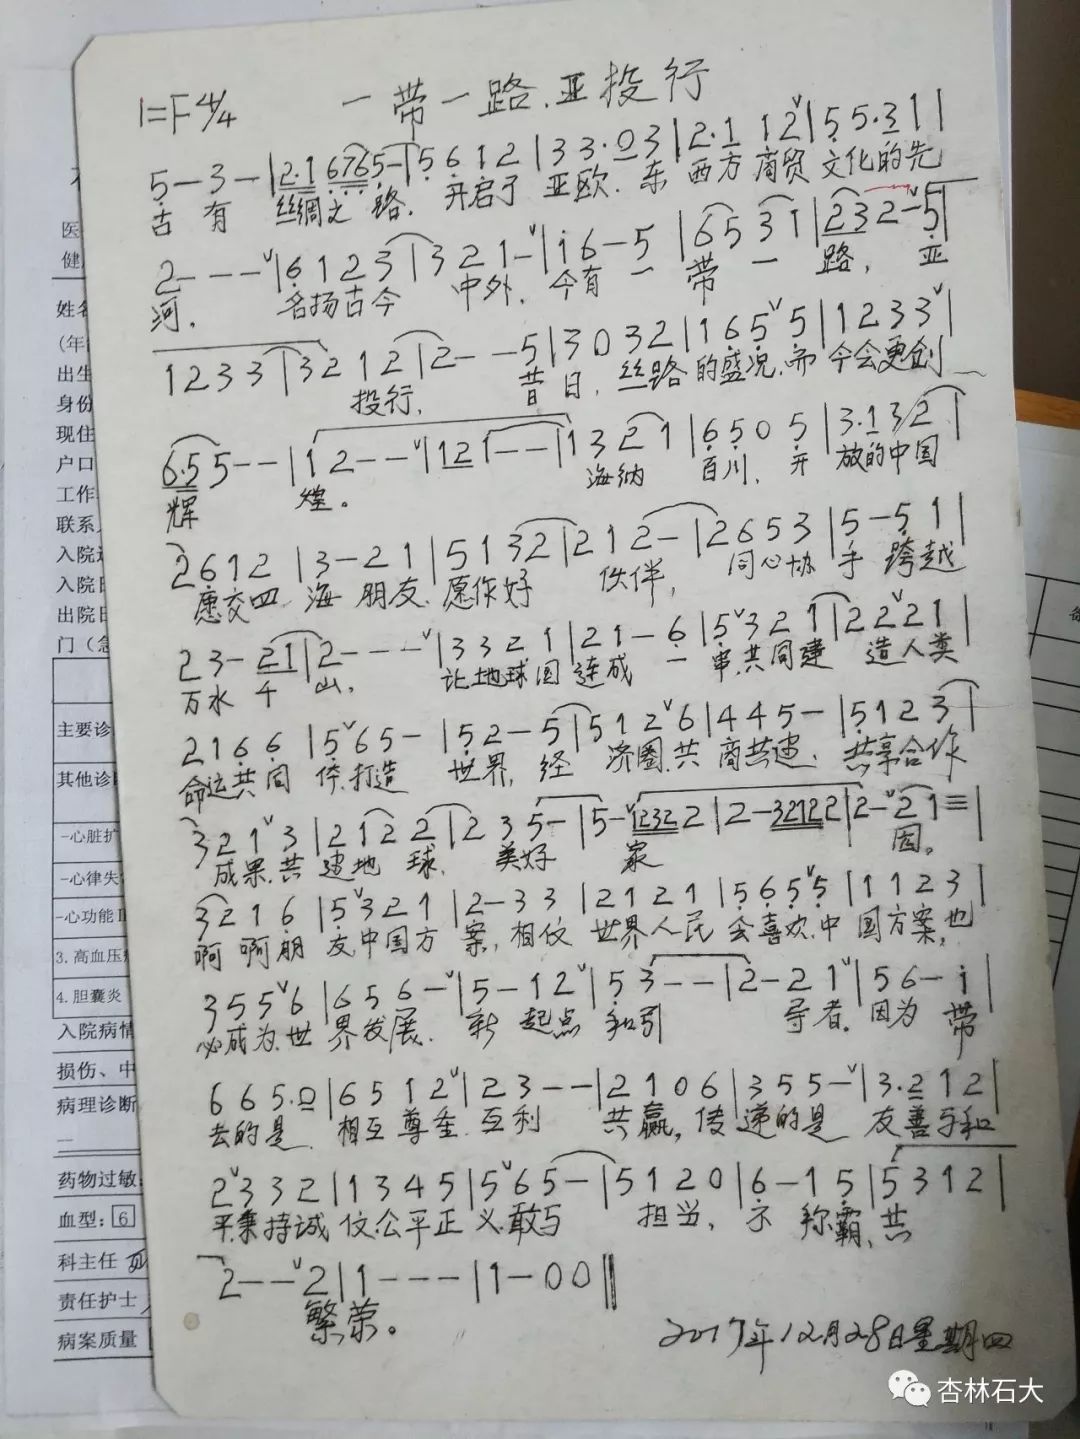 一带一路.亚投行
1=F 4/4
5 — 3 — | 2·1 6765 — | 5 6 1 2 | 3 3·0 3 | 2·1 1 2ˇ | 5 5·3 1 |
古 有 丝绸之 路. 开启了 亚欧. 东 西方 商贸 文化的先
2 - - -ˇ | 6 1 2 3 | 3 2 1 -ˇ | i 6 — 5 | 6 5 3 1 | 2 3 2 -ˇ 5 |
河. 名扬古今 中外. 今有 一 带 一 路, 亚
1 2 3 3 | 3 2 1 2 | 2 - - - 5 | 3 0 3 2 | 1 6 5ˇ 5 | 1 2 3 3ˇ |
投行, 昔 日, 丝路 的盛况, 而 今会更创
6·5 5 - - | 1 2 - -ˇ | 1 2 1 - - | 1 3 2 1 | 6 5 0 5 | 3·1 3 2 |
辉 煌。 海纳 百川, 开 放的中国
2 6 1 2 | 3 — 2 1 | 5 1 3 2 | 2 1 2 — | 2 6 5 3 | 5 — 5 1 |
愿交四 海 朋友. 愿作好 伙伴, 同心协 手 跨越
2 3 - 2 1 | 2 - - -ˇ | 3 3 2 1 | 2 1 — 6 | 5ˇ 3 2 1 | 2 2ˇ 2 1 |
万水 千 山, 让地球国 连成 一 串.共同建 造人类
2 1 6 6 | 5ˇ 6 5 - | 5 2 — 5 | 5 1 2ˇ 6 | 4 4 5 — | 5 1 2 3 |
命运共同 体.打造 世界, 经 济圈.共 商共建. 共享合作
3 2 1ˇ 3 | 2 1 2 2 | 2 3 5 — | 5 -ˇ 1232 2 | 2 — 32122 | 2 -ˇ 2 1 ≡ |
成果.共 建地 球. 美好 家 园。
3 2 1 6 | 5ˇ 3 2 1 | 2 - 3 3 | 2 1 2 1 | 5 6 5ˇ 5 | 1 1 2 3 |
啊 啊朋 友.中国方 案,相仪 世界人民 会喜欢.中 国方案,也
3 5 5ˇ 6 | 6 5 6 -ˇ | 5 - 1 2ˇ | 5 3 - - | 2 - 2 1ˇ | 5 6 - i |
必成为.世 界发展. 新 起点 和引 导者. 因为 带
6 6 5·0 | 6 5 1 2ˇ | 2 3 - - | 2 1 0 6 | 3 5 5 -ˇ | 3·2 1 2 |
去的是. 相互尊重. 互利 共赢, 传 递的是 友善与和
2ˇ 3 3 2 | 1 3 4 5 | 5ˇ 6 5 — | 5 1 2 0 | 6 - 1 5 | 5 3 1 2 |
平.秉持诚 仪.公平正 义.敢与 担当, 不 称霸, 共
2 - -ˇ 2 | 1 - - - | 1 - 0 0 ‖
繁荣。
2017年12月28日星期四
医
健
姓名
(年
出生
身份
现住
户口
工作
联系
入院
入院日
出院日
门（急
主要诊
其他诊
-心脏扩
-心律失
-心功能
3.高血压
4.胆囊炎
入院病情
损伤、中
病理诊断
药物过敏
血型: 6
科主任
责任护士
病案质量
杏林石大